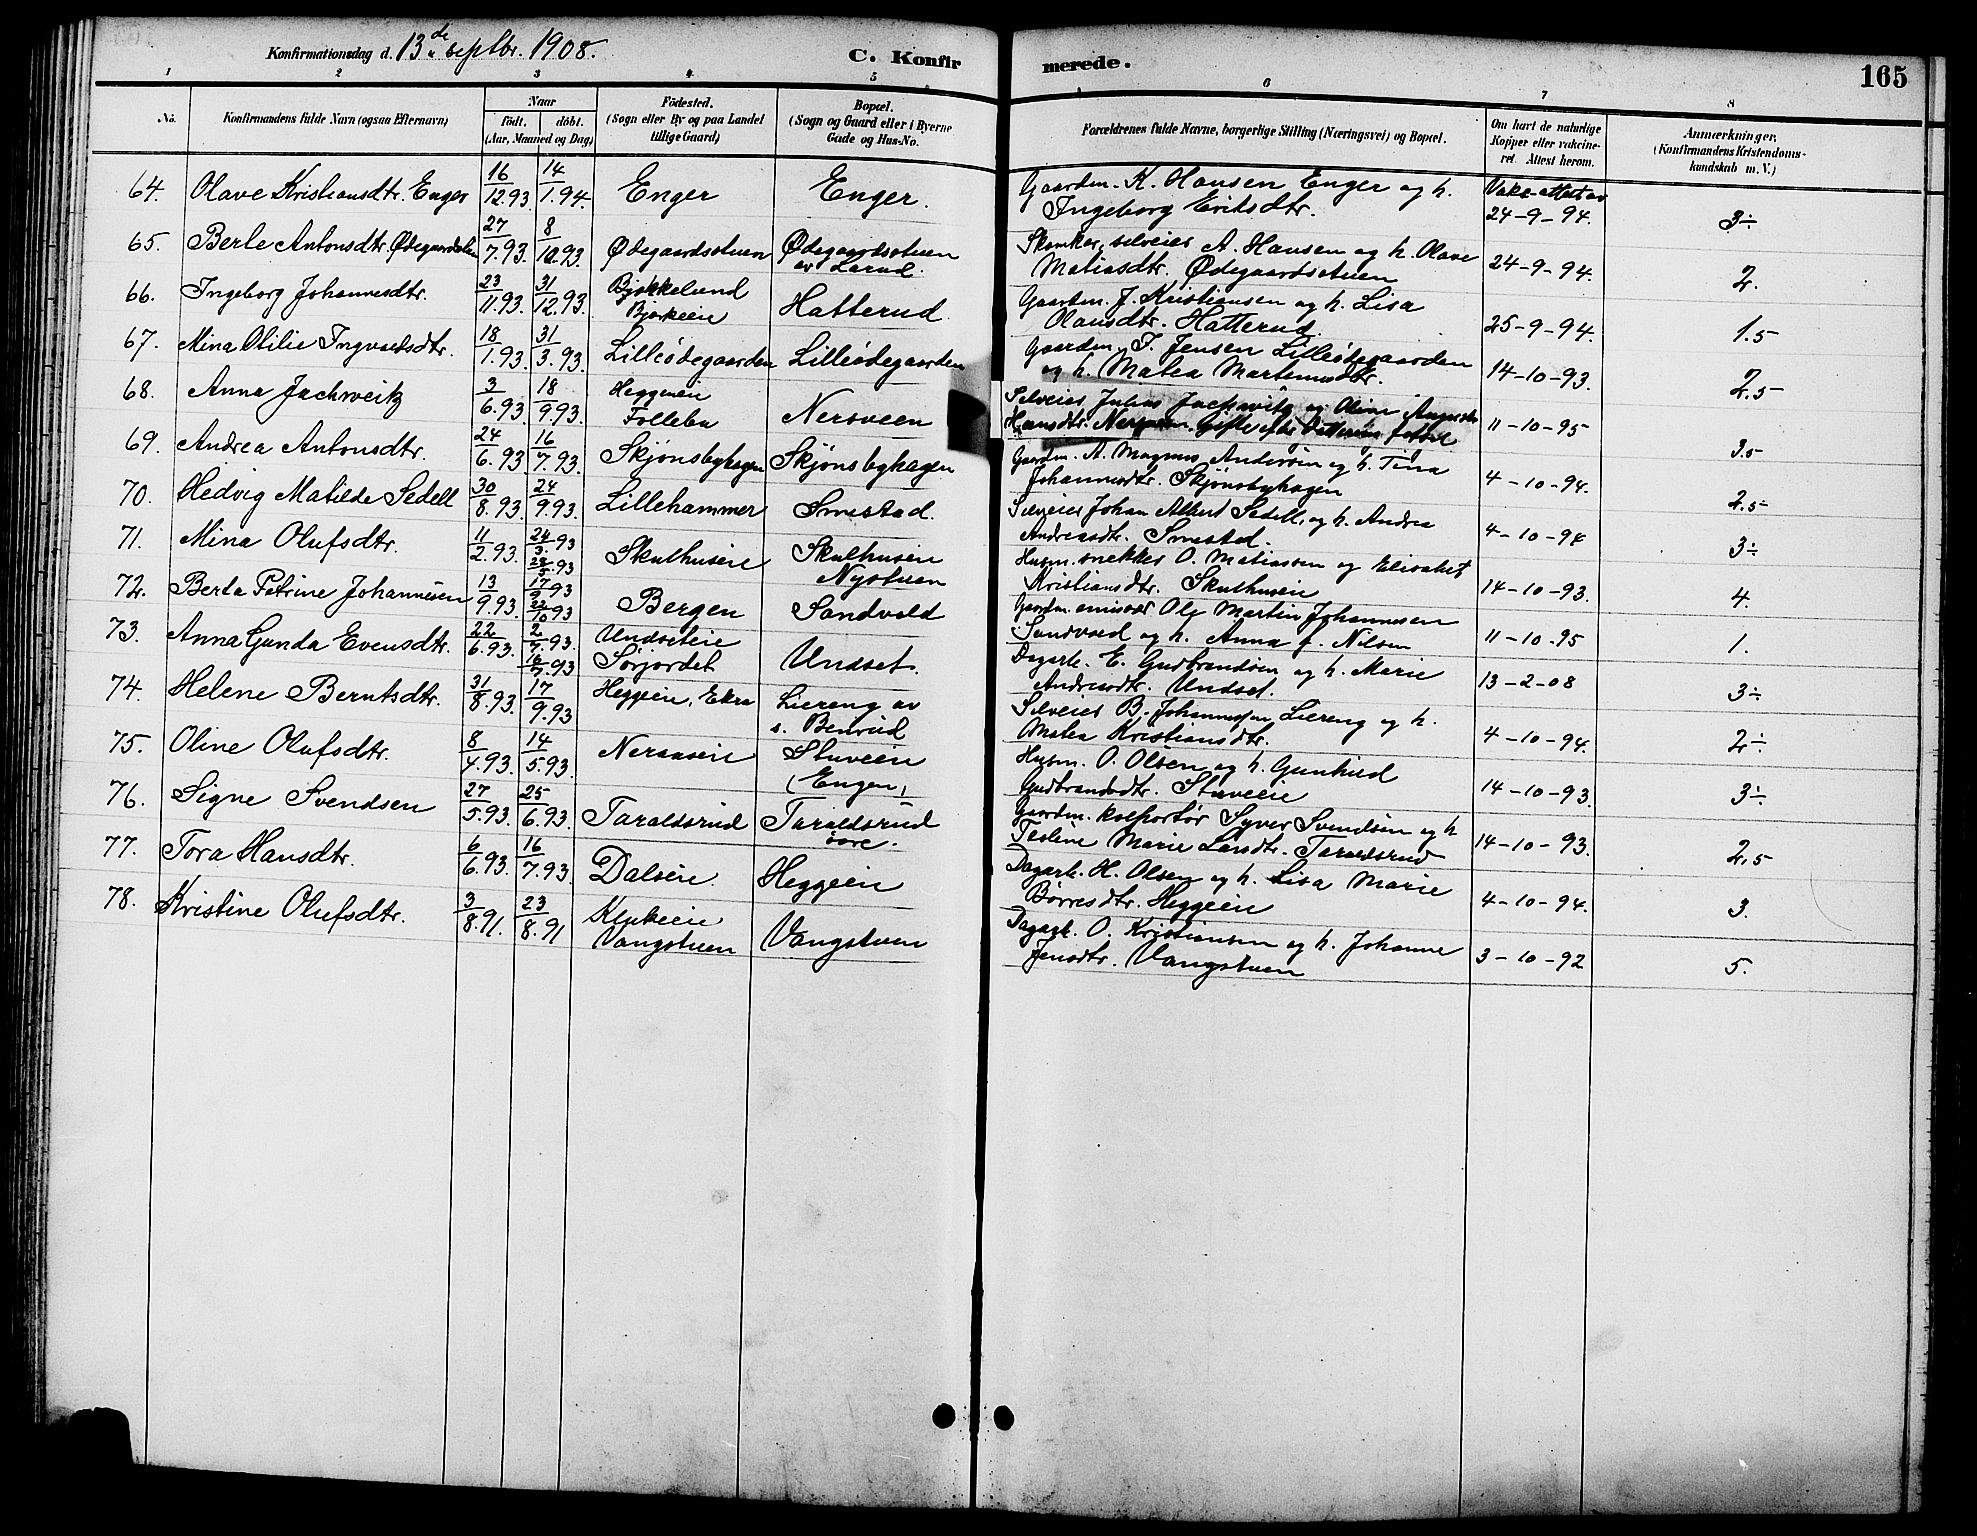 Konfirmationsdag d. 13de septbr. 1908.
C. Konfirmerede.
165
1 2 3 4 5 6 7 8
No. Konfirmandens fulde Navn (ogsaa Efternavn) Naar födt. döbt. (Aar, Maaned og Dag) Födested. (Sogn eller By og paa Landet tillige Gaard) Bopæl. (Sogn og Gaard eller i Byerne Gade og Hus-No. Forældrenes fulde Navne, borgerlige Stilling (Næringsvei) og Bopæl. Om havt de naturlige Kopper eller vakcineret. Attest herom. Anmærkninger, (Konfirmandens Kristendomskundskab m. V.)
64. Olave Kristiansdtr. Enger 16/12.93. 14/1.94. Enger Enger. Gaardm. K. Hansen Enger og h. Vakc-attest av
Ingeborg Eriksdtr. 24-9-94. 3÷
65. Berte Antonsdtr. 27/7.93. 8/10.93. Ødegaardsstuen Ødegaardsstuen av Larud. selveier A. Hansen og h. Olave
Matiasdtr. Ødegaardsstuen 24-9-94. 2.
66. Ingeborg Johannesdtr. 23/11.93. 31/12.93. Bjørkeeie Hatterud. Gaardm. J. Kristiansen og h. Lisa
Olausdtr. Hatterud. 25-9-94. 1.5
67. Mina Otilie Ingvaldsdtr. 18/1.93. 31/3.93. Lilleødegaarden Lilleødegaarden Gaardm. I. Jensen Lilleødegaarden
og h. Matea Martinusdtr. 14-10-93. 2.5
68. Anna Jachweitz 3/6.93. 18/9.93. Heggeneie Follebu Nersveen Selveier Julius og Oline
Hansdtr. 11-10-95
69. Andrea Antonsdtr. 24/6.93 16/7.93. Skjønsbyhagen Skjønsbyhagen Gaardm. A. Magnus Andersen og h. Tina 3.5
Johannesdtr. Skjønsbyhagen 4-10-94.
70. Hedvig Matilde Sedell 30/8.93. 24/9.93. Lillehammer Smestad. Selveier Johan Albert Sedell, og h. Andrea 2.5
Andreasdtr. Smestad. 4-10-94
71. Mina Olufsdtr. 11/2.93. 24/3.93 28/5.93 Skulhuseie Skulhuseie Nystuen Husm. snekker O. Matiassen og Elisabet 3÷
Kristiansdtr. Skulhuseie 14-10-93.
72. Berta Petrine Johannesen 13/9.93. 17/9.93 22/10.93 Bergen Sandvold Gaardm. emissær Ole Martin Johannesen 4.
Sandvold og h. Anna f. Nilsen 11-10-95 1.
73. Anna Gunda Evensdtr. 22/6.93. 2/7.93. 16/7.93 Undseteie Sørjordet Undset. Dagarb. E. Gudbrandsen og h. Marie
Andreasdtr. Undset. 13-2-08 3÷
74. Helene Berntsdtr. 31/8.93. 17/9.93 Heggeeie, Ekra Liereng av s. Benrud Selveier B. Johannessen Liereng og h.
Matea Kristiansdtr. 4-10-94. 2÷
75. Oline Olufsdtr. 8/4.93. 14/5.93. Stuveeie (Engen) Husm. O. Olsen og h. Gunhild
Gudbrandsdtr. Stuveeie 14-10-93. 3÷
76. Signe Svendsen 27/5.93. 25/6.93. Taraldsrud Taraldsrud øvre. Gaardm. kolportør Syver Svendsen og h
Teoline Marie Larsdtr. Taraldsrud 14-10-93. 2.5
77. Tora Hansdtr. 6/6.93. 16/7.93. Dalseie. Heggeeie Dagarb. H. Olsen og h. Lisa Marie
Børresdtr. Heggeeie 4-10-94. 3.
78. Kristine Olufsdtr. 3/8.91. 23/8.91 Klukeeie Vangstuen Vangstuen Dagarb. O. Kristiansen og h. Johanne
Jensdtr. Vangstuen 3-10-92 5.